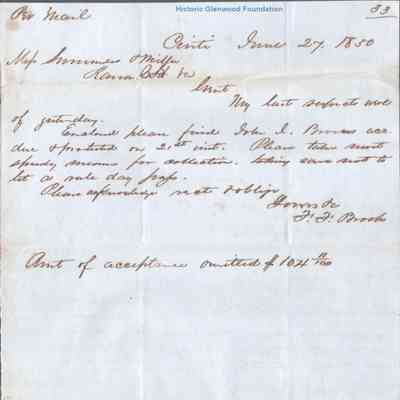 Historic Glenwood Foundation
Per Mail 33
Cinti June 27, 1850
Mess Summers & Miller
Kana C.H. Va
Gent
My last respects were
of yesterday.
Enclosed please find John J. Browns acc
due & protested on 21st inst. Please take most
speedy means for collection. taking care not to
let a rule day pass.
Please acknowledge rect & oblige
Yours &c
F. F. Brook
Amt of acceptance omitted $ 104